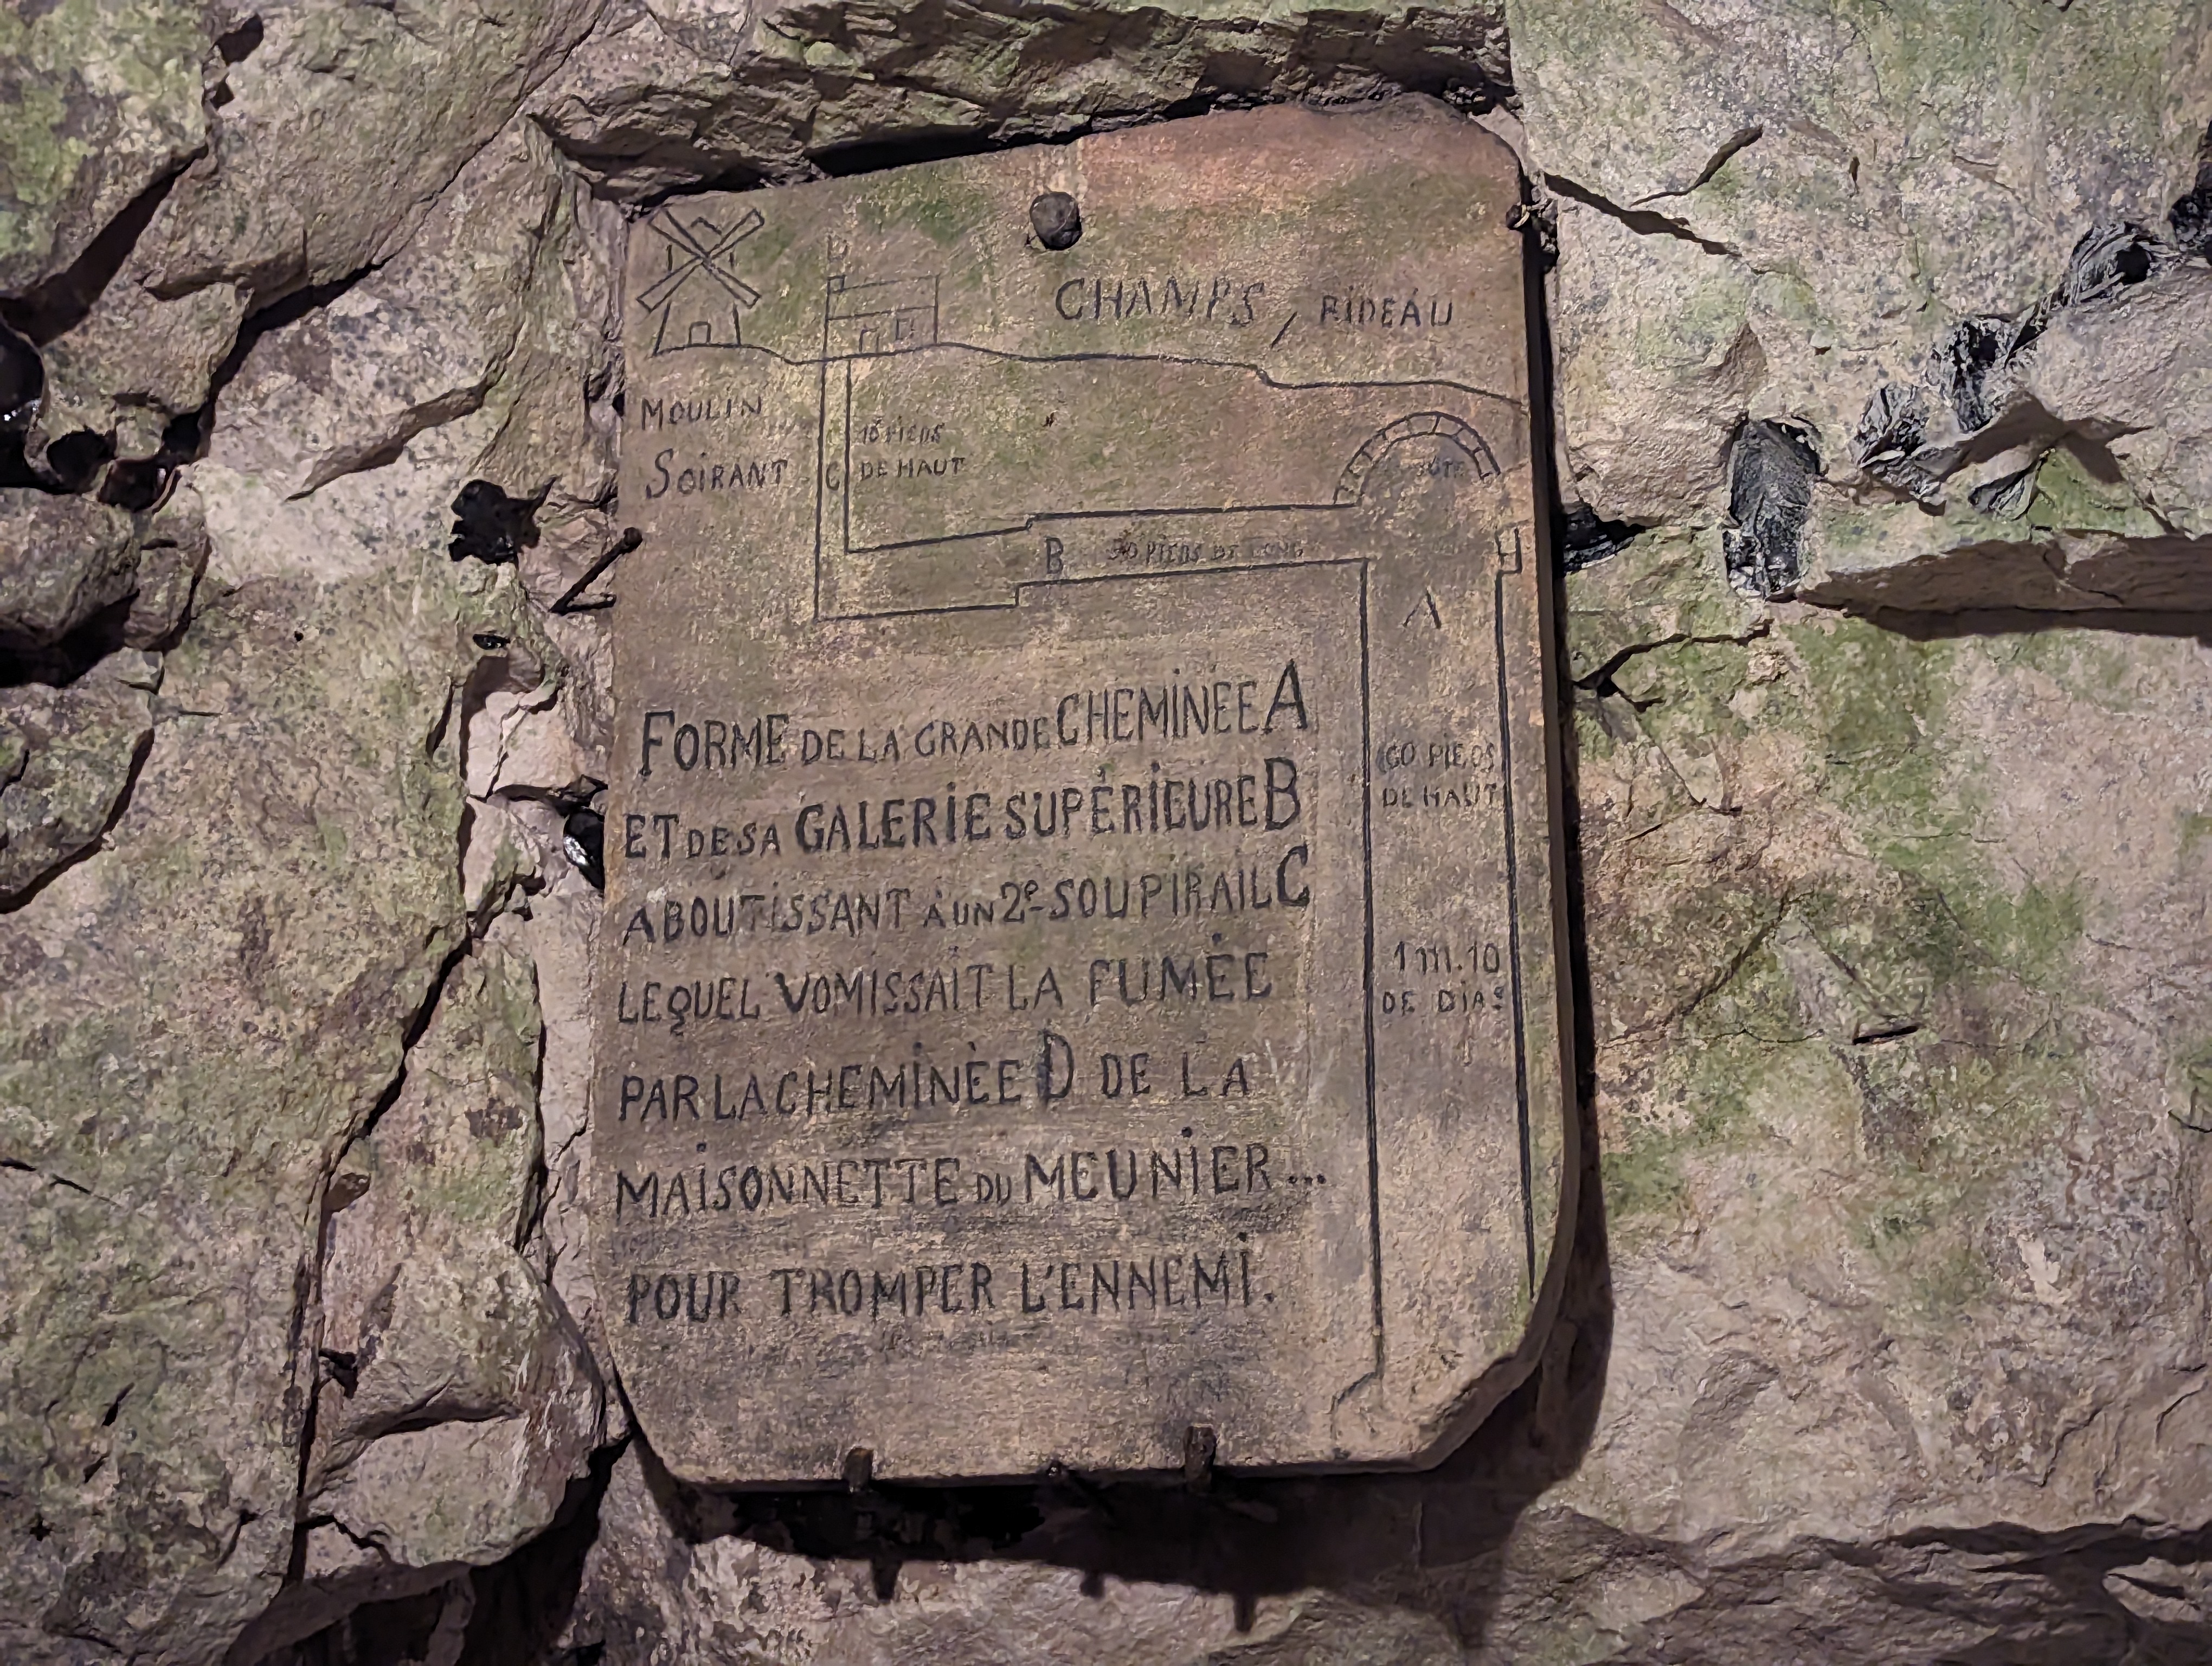 CHAMPS, RIDEAU
MOULIN
SOIRANT
C
PIEDS
DE HAUT
B
PIEDS DE LONG
A
FORME DE LA GRANDE CHEMINEE A
ET DE SA GALERIE SUPÉRIEURE B
ABOUTISSANT À UN 2e SOUPIRAIL C
LEQUEL VOMISSAIT LA FUMÉE
PAR LA CHEMINÈE D DE LA
MAISONNETTE DU MEUNIER...
POUR TROMPER L'ENNEMI.
60 PIEDS
DE HAUT
1 m. 10
DE DIAe